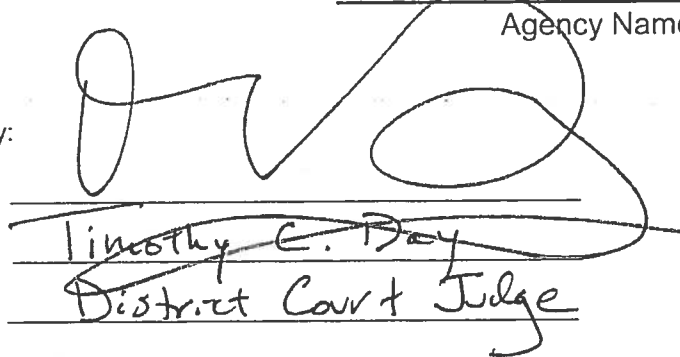 Agency Name
y:
Timothy C. Day
District Court Judge